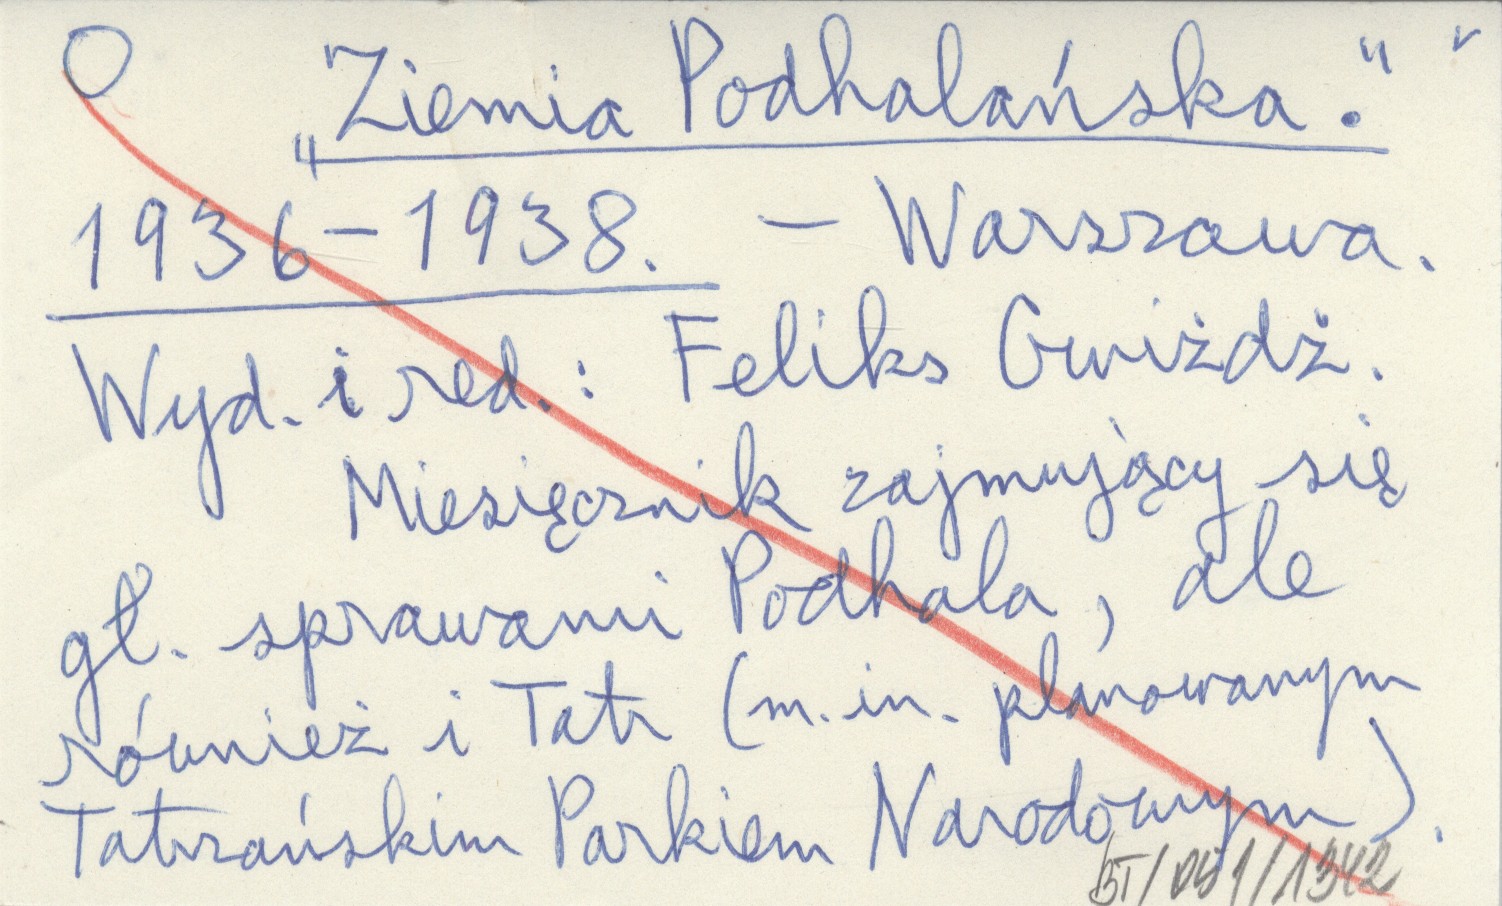 O „Ziemia Podhalańska."
1936–1938. – Warszawa.
Wyd. i red.: Feliks Gwiżdż.
Miesięcznik zajmujący się
gł. sprawami Podhala, ale
również i Tatr (m.in. planowanym
Tatrzańskim Parkiem Narodowym).